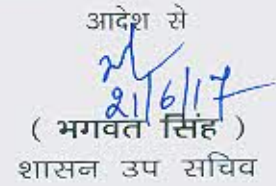 आदेश से
21/6/17
( भगवत सिंह )
शासन उप सचिव